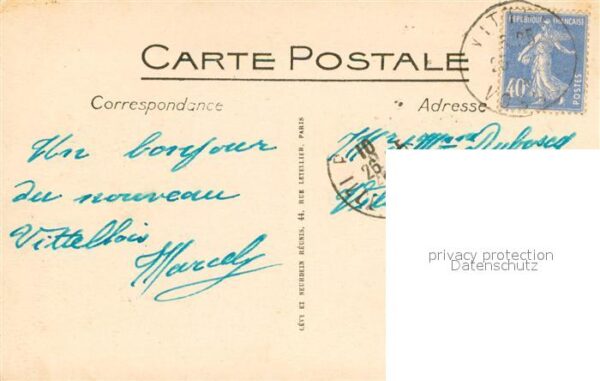 CARTE POSTALE
Correspondance
Adresse
RÉPUBLIQUE FRANÇAISE
40c
POSTES
VIT
VOS
Un bonjour
du nouveau
Vittellois
Marcel
Mr et Mme Duboscq
10
26
LÉVY ET NEURDEIN RÉUNIS, 44, RUE LETELLIER, PARIS
privacy protection
Datenschutz